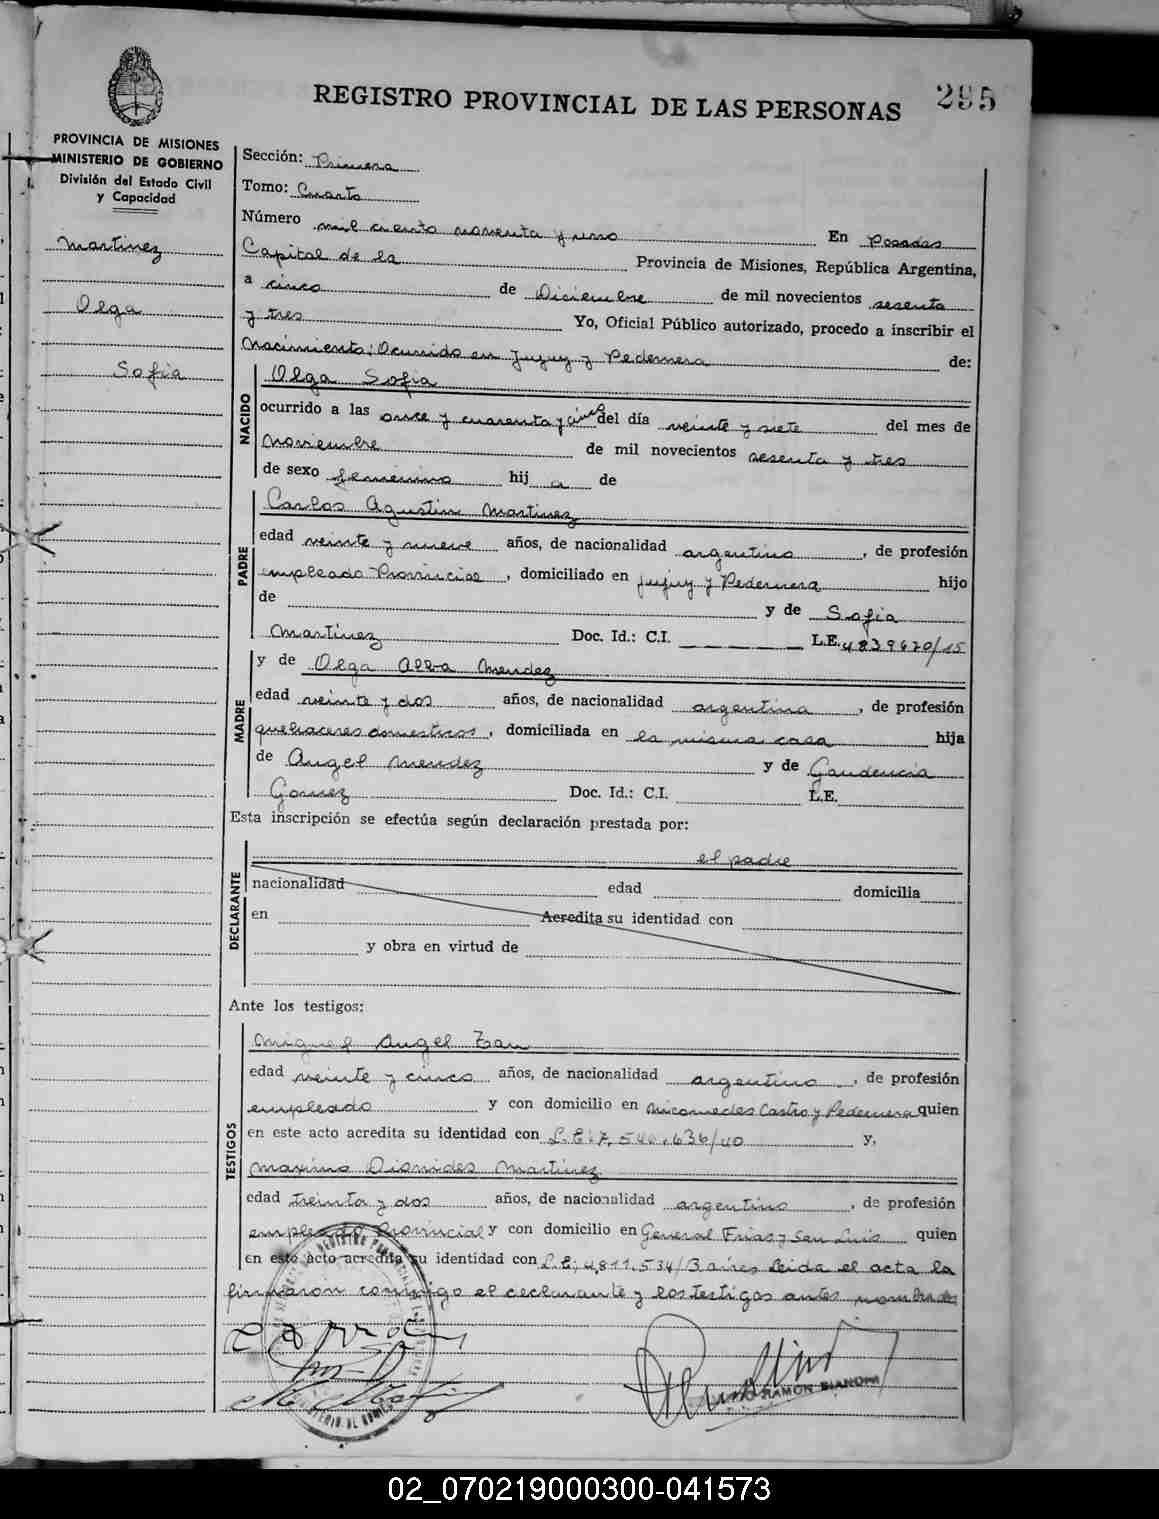 REGISTRO PROVINCIAL DE LAS PERSONAS
295
PROVINCIA DE MISIONES
MINISTERIO DE GOBIERNO
División del Estado Civil
y Capacidad
Martinez
Olga
Sofia
Sección: Primera
Tomo: Cuarto
Número mil ciento noventa y uno En Posadas
Capital de la Provincia de Misiones, República Argentina,
a cinco de Diciembre de mil novecientos sesenta
y tres Yo, Oficial Público autorizado, procedo a inscribir el
Nacimiento: Ocurrido en Jujuy y Pedernera de:
NACIDO
Olga Sofia
ocurrido a las once y cuarenta y cinco del día veinte y siete del mes de
Noviembre de mil novecientos sesenta y tres
de sexo femenino hij a de
PADRE
Carlos Agustin Martinez
edad veinte y nueve años, de nacionalidad argentino, de profesión
empleado Provincial, domiciliado en Jujuy y Pedernera hijo
de y de Sofia
Martinez Doc. Id.: C.I. L.E. 4839670/15
MADRE
y de Olga Alba Mendez
edad veinte y dos años, de nacionalidad argentina, de profesión
quehaceres domesticos, domiciliada en la misma casa hija
de Angel Mendez y de Gaudencia
Gomez Doc. Id.: C.I. L.E.
Esta inscripción se efectúa según declaración prestada por:
DECLARANTE
el padre
nacionalidad edad domicilia
en Acredita su identidad con
y obra en virtud de
Ante los testigos:
TESTIGOS
Miguel Angel
edad veinte y cinco años, de nacionalidad argentino, de profesión
empleado y con domicilio en Nicomedes Castro y Pedernera quien
en este acto acredita su identidad con L.E: 7.540.636/40 y,
Maximo Dionides Martinez
edad treinta y dos años, de nacionalidad argentino, de profesión
empleado Provincial y con domicilio en General Frias y San Luis quien
en este acto acredita su identidad con L.E; 4.811.534/B aires Leida el acta la
firmaron conmigo el declarante y los testigos antes nombrados
RAMON BIANCHI
02_070219000300-041573